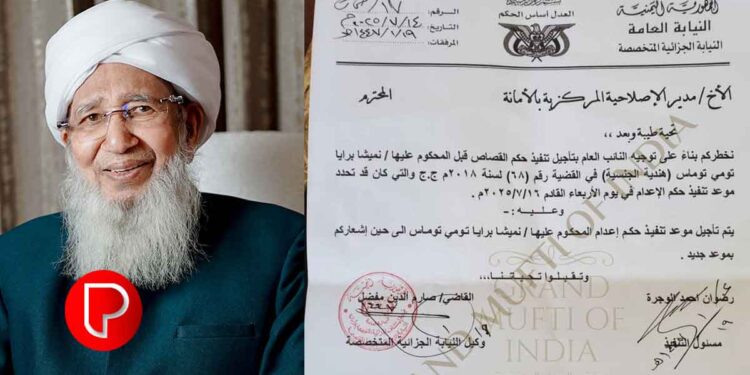 الجمهورية اليمنية
النيابة العامة
النيابة الجزائية المتخصصة
العدل أساس الحكم
الرقم:
التاريخ: ٢٠٢٥/٧/١٤م
المرفقات: ١٤٤٧/١/١٩هـ
الأخ/ مدير الإصلاحية المركزية بالأمانة المحترم
تحية طيبة وبعد ،،
نخطركم بناءً على توجيه النائب العام بتأجيل تنفيذ حكم القصاص قبل المحكوم عليها/ نميشا برايا
تومي توماس (هندية الجنسية) في القضية رقم (٦٨) لسنة ٢٠١٨م ج.ج والتي كان قد تحدد
موعد تنفيذ حكم الإعدام في يوم الأربعاء القادم ٢٠٢٥/٧/١٦م.
وعليه:-
يتم تأجيل موعد تنفيذ حكم إعدام المحكوم عليها/ نميشا برايا تومي توماس الى حين إشعاركم
بموعد جديد.
وتقبلوا تحيتنا،،،
رضوان احمد الوجرة
مسئول التنفيذ
القاضي/ صارم الدين مفضل
وكيل النيابة الجزائية المتخصصة
GRAND MUFTI OF INDIA
GRAND
MUFTI OF
INDIA